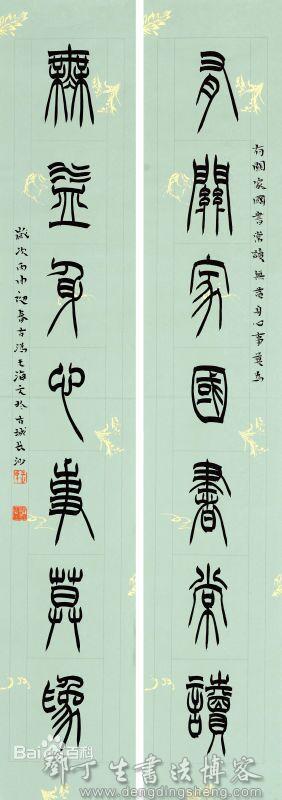 有關家國書常讀
有關家國書常讀無益身心事莫為
無益身心事莫為
歲次丙申迎春古海文於古城長沙
Bai百科
鄧丁生書法博客
www.dengdingsheng.com